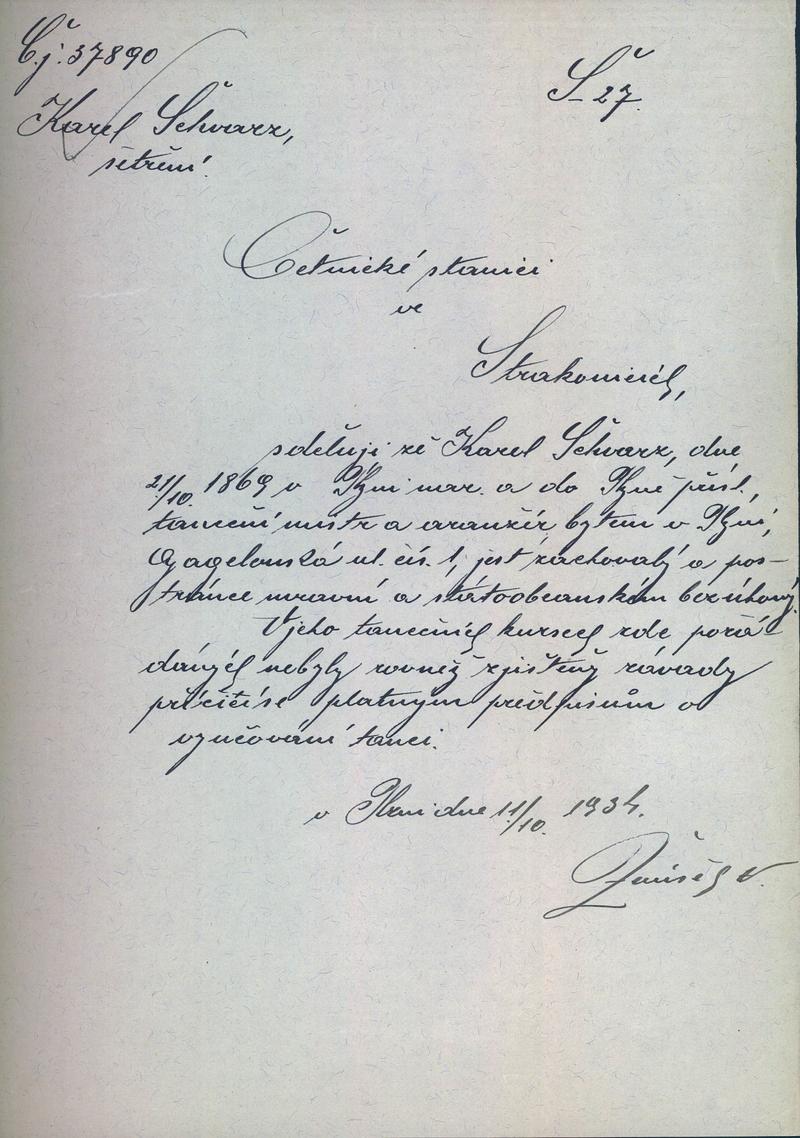 Č.j. 37890
Š-27.
Karel Schwarz,
šetření.
Četnické stanici
ve
Strakonicích,
sděluji že Karel Schwarz, dne
21/10. 1869 v Plzni nar. a do Plzně přísl.,
taneční mistr a aranžér bytem v Plzni,
ul. čís. 1, jest zachovalý a po
stránce mravní a státoobčanském bezúhoný.
V jeho tanečních kursech zde pořá-
daných nebyly rovněž zjištěny závady
příčící se platným předpisům o
vyučování tanci.
v Plzni dne 11/10. 1934.